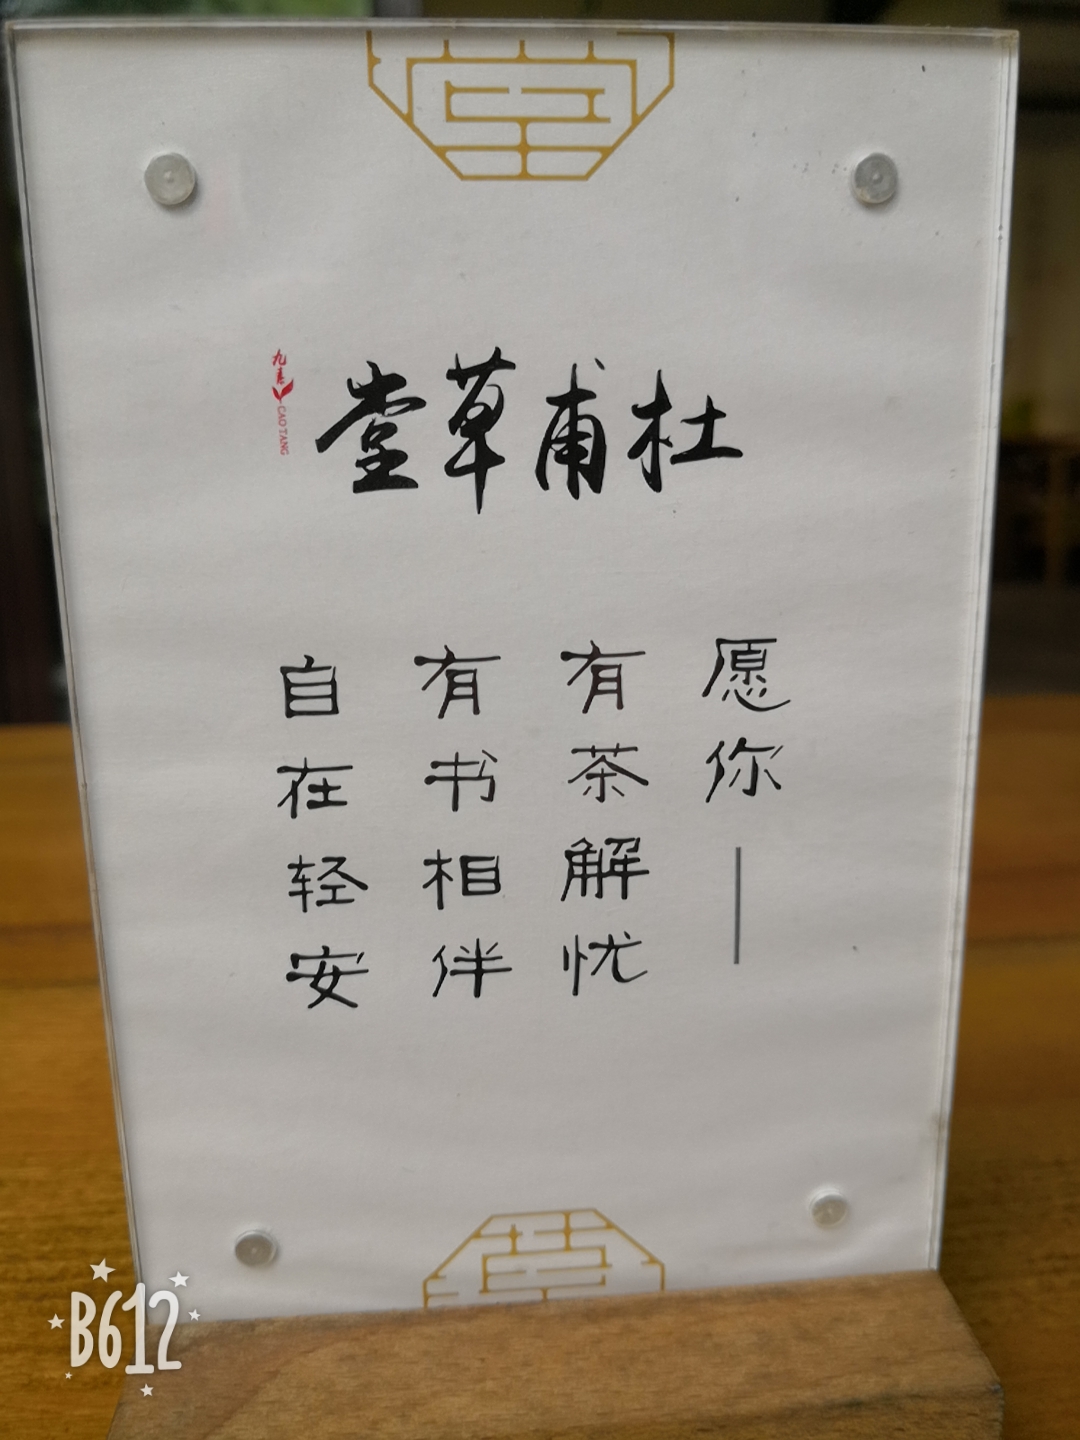 杜甫草堂
九春
CAO TANG
愿你——
有茶解忧
有书相伴
自在轻安
B612